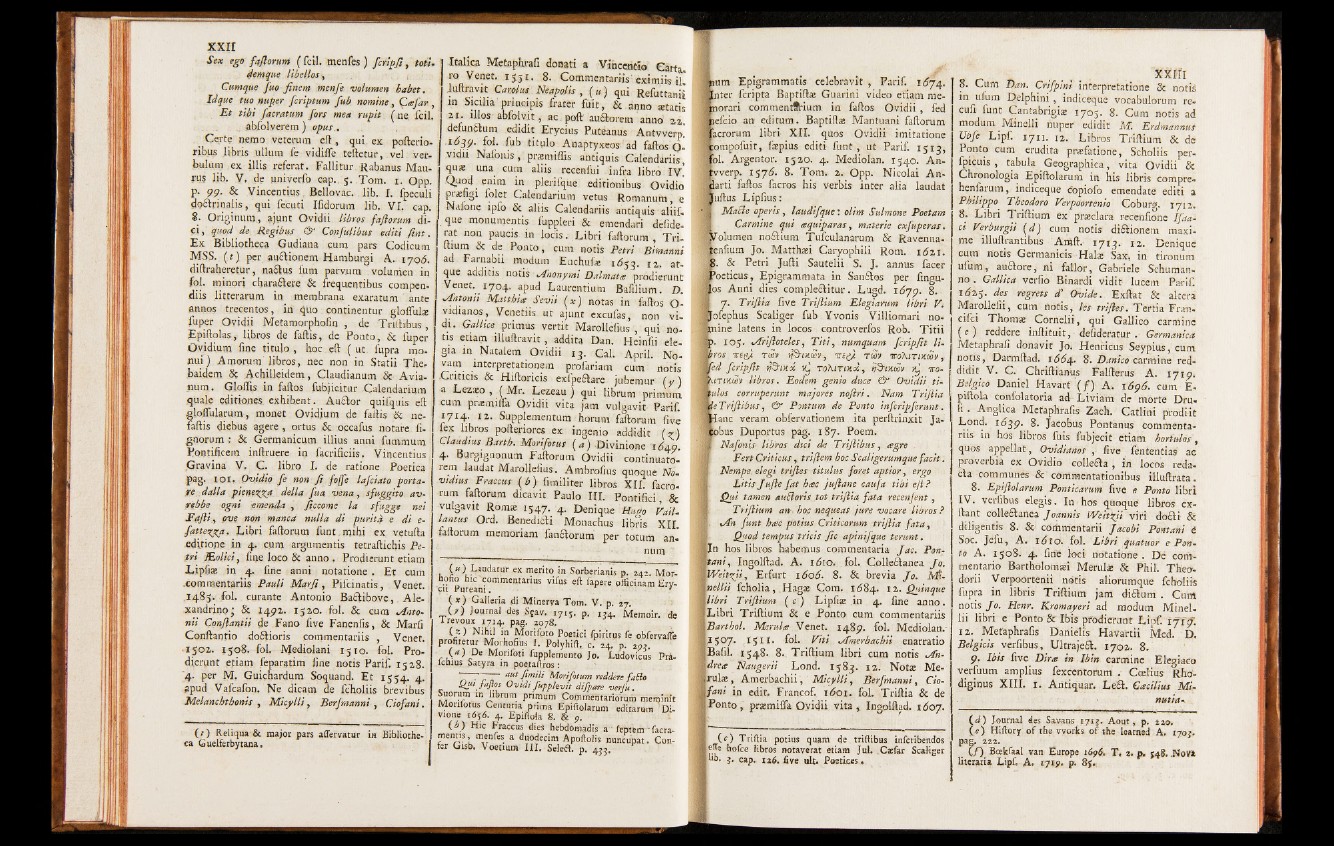 XXII
Sex ego faſtorum (ſcil. menſes) ſcripſi, toti-
demque libellos,
Cumque ſuo finem menſe volumen habet.
Idque tuo nuper ſcriptum ſub nomine, Cæſar,
Et tibi ſacratum ſors mea rupit (ne ſcil.
abſolverem) opus.
Certe nemo veterum eſt, qui ex poſterio-
ribus libris ullum ſe vidiſſe teſtetur, vel ver-
bulum ex illis referat. Fallitur Rabanus Mau-
rus lib. V. de univerſo cap. 5. Tom. 1. Opp.
p. 99. & Vincentius Bellovac. lib. I. ſpeculi
doctrinalis, qui ſecuti Iſidorum lib. VI. cap.
8. Originum, ajunt Ovidii libros faſtorum di-
ci, quod de Regibus & Conſulibus editi ſint.
Ex Bibliotheca Gudiana cum pars Codicum
MSS. (t) per auctionem Hamburgi A. 1706.
diſtraheretur, nactus ſum parvum volumen in
fol. minori charactere & frequentibus compen-
diis litterarum in membrana exaratum ante
annos trecentos, in quo continentur gloſſulæ
ſuper Ovidii Metamorphoſin, de Triſtibus,
Epiſtolas, libros de faſtis, de Ponto, & ſuper
Ovidium ſine titulo, hoc eſt (ut ſupra mo-
nui) Amorum libros, nec non in Statii The-
baidem & Achilleidem, Claudianum & Avia-
num. Gloſſis in faſtos ſubjicitur Calendarium
quale editiones exhibent. Auctor quiſquis eſt
gloſſularum, monet Ovidium de faſtis & ne-
faſtis diebus agere, ortus & occaſus notare ſi-
gnorum: & Germanicum illius anni ſummum
Pontificem inſtruere in ſacrificiis. Vincentius
Gravina V. C. libro I. de ratione Poetica
pag. 101. Ovidio ſe non ſi foſſe laſciato porta-
re dalla pienezza della ſua vena, sfuggito av-
rebbe ogni emenda, ſiccome la sfugge nei
Faſti, ove non manca nulla di purità e di e-
ſattezza. Libri faſtorum ſunt mihi ex vetuſta
editione in 4. cum argumentis tetraſtichis Pe-
tri Æolici, ſine loco & anno. Prodierunt etiam
Lipſiæ in 4. ſine anni notatione. Et cum
commentariis Pauli Marſi, Piſcinatis, Venet.
1485. fol. curante Antonio Bactibove, Ale-
xandrino; & 1492. 1520. fol. & cum Anto-
nii Conſtantii de Fano ſive Fanenſis, & Marſi
Conſtantio doctioris commentariis, Venet.
1502. 1508. fol. Mediolani 1510. fol. Pro-
dierunt etiam ſeparatim ſine notis Pariſ. 1528.
4. per M. Guichardum Soquand. Et 1554. 4.
apud Vaſcoſan. Ne dicam de ſcholiis brevibus
Melanchthonis, Micylli, Berſmanni, Ciofani.
(t) Reliqua & major pars aſſervatur in Bibliothe-
ca Guelferbytana.
Italica Metaphraſi donati a Vincentio Carta-
ro Venet. 1551. 8. Commentariis eximiis il-
luſtravit Carolus Neapolis, (u) qui Refuttanii
in Sicilia principis frater fuit, & anno ætatis
21. illos abſolvit, ac poſt auctorem anno 22.
defunctum edidit Erycius Puteanus Antvverp.
1639. fol. ſub titulo Anaptyxeos ad faſtos O-
vidii Naſonis, præmiſſis antiquis Calendariis,
quæ una cum aliis recenſui infra libro IV.
Quod enim in pleriſque editionibus Ovidio
præfigi ſolet Calendarium vetus Romanum, e
Naſone ipſo & aliis Calendariis antiquis aliiſ-
que monumentis ſuppleri & emendari deſide-
rat non paucis in locis. Libri faſtorum, Tri-
ſtium & de Ponto, cum notis Petri Bimanni
ad Farnabii modum Enchuſæ 1653. 12. at-
que additis notis Anonymi Dalmatæ prodierunt
Venet. 1704. apud Laurentium Baſilium. D.
Antonii Matthiæ Sevii (x) notas in faſtos O-
vidianos, Venetiis ut ajunt excuſas, non vi-
di. Gallice primus vertit Marolleſius, qui no-
tis etiam illuſtravit, addita Dan. Heinſii ele-
gia in Natalem Ovidii 13. Cal. April. No-
vam interpretationem proſariam cum notis
Criticis & Hiſtoricis exſpectare jubemur (y)
a Lezæo, (Mr. Lezeau) qui librum primum
cum præmiſſa Ovidii vita jam vulgavit Pariſ.
1714. 12. Supplementum horum faſtorum ſive
ſex libros poſteriores ex ingenio addidit (z)
Claudius Barth. Moriſotus (a) Divinione 1649.
4. Burgignonum Faſtorum Ovidii continuato-
rem laudat Marolleſius. Ambroſius quoque No-
vidius Fraccus (b) ſimiliter libros XII. ſacro-
rum faſtorum dicavit Paulo III. Pontifici, &
vulgavit Romæ 1547. 4. Denique Hugo Vail-
lantus Ord. Benedicti Monachus libris XII.
faſtorum memoriam ſanctorum per totum an-
num
(u) Laudatur ex merito in Sorberianis p. 242. Mor-
hofio hic commentarius viſus eſt ſapere officinam Ery-
cii Puteani.
(x) Galleria di Minerva Tom. V. p. 27.
(y) Journal des Sçav. 1715. p. 134. Memoir. de
Trevoux 1714. pag. 2078.
(z) Nihil in Moriſoto Poetici ſpiritus ſe obſervaſſe
profitetur Morhofius I. Polyhiſt. c. 24. p. 293.
(a) De Moriſoti ſupplemento Jo. Ludovicus Pra-
ſchius Satyra in poetaſtros:
——— aut ſimili Moriſotum reddere facto
Qui faſtos Ovidi ſupplevit diſpare verſu.
Suorum in librum primum Commentariorum meminit
Moriſotus Centuria prima Epiſtolarum editarum Di-
vione 1656. 4. Epiſtola 8. & 9.
(b) Hic Fraccus dies hebdomadis a ſeptem ſacra-
mentis, menſes a duodecim Apoſtolis nuncupat. Con-
fer Gisb. Voetium III. Select. p. 433.
XXIII
num Epigrammatis celebravit, Pariſ. 1674.
Inter ſcripta Baptiſtæ Guarini video etiam me-
morari commentarium in faſtos Ovidii, ſed
neſcio an editum. Baptiſtæ Mantuani faſtorum
ſacrorum libri XII. quos Ovidii imitatione
compoſuit, ſæpius editi ſunt, ut Pariſ. 1513,
fol. Argentor. 1520. 4. Mediolan. 1540. An-
tvverp. 1576. 8. Tom. 2. Opp. Nicolai An-
darti faſtos ſacros his verbis inter alia laudat
Juſtus Lipſius:
Macte operis, laudiſque: olim Sulmone Poetam
Carmine qui æquiparas, materie exſuperas.
Volumen noctium Tuſculanarum & Ravenna-
tenſium Jo. Matthæi Caryophili Rom. 1621.
8. & Petri Juſti Sautelii S. J. annus ſacer
Poeticus, Epigrammata in Sanctos per ſingu-
los Anni dies complectitur. Lugd. 1679. 8.
7. Triſtia ſive Triſtium Elegiarum libri V.
Joſephus Scaliger ſub Yvonis Villiomari no-
mine latens in locos controverſos Rob. Titii
p. 105. Ariſtoteles, Titi, numquam ſcripſit li-
bros περὶ τῶν ἠθικῶν, περὶ τῶν πολιτικῶν,
ſed ſcripſit ἠθικὰ κ πολιτικὰ, ἠθικῶν κ πο-
λιτικῶν libros. Eodem genio duce & Ovidii ti-
tulos corruperunt majores noſtri. Nam Triſtia
de Triſtibus, & Pontum de Ponto inſcripſerunt.
Hanc veram obſervationem ita perſtrinxit Ja-
cobus Duportus pag. 187. Poem.
Naſonis libros dici de Triſtibus, ægre
Fert Criticus, triſtem hoc Scaligerumque facit.
Nempe elegi triſtes titulus foret aptior, ergo
Litis Juſte ſat hæc juſtane cauſa tibi eſt?
Qui tamen auctoris tot triſtia fata recenſent,
Triſtium an hoc nequeat jure vocare libros?
An ſunt hæc potius Criticorum triſtia fata,
Quod tempus tricis ſic apiniſque terunt.
In hos libros habemus commentaria Jac. Pon-
tani, Ingolſtad. A. 1610. fol. Collectanea Jo.
Weitzii, Erfurt 1606. 8. & brevia Jo. Mi-
nellii ſcholia, Hagæ Com. 1684. 12. Quinque
libri Triſtium (c) Lipſiæ in 4. ſine anno.
Libri Triſtium & e Ponto cum commentariis
Barthol. Merulæ Venet. 1489. fol. Mediolan.
1507. 1511. fol. Viti Amerbachii enarratio
Baſil. 1548. 8. Triſtium libri cum notis An-
dreæ Naugerii Lond. 1583. 12. Notæ Me-
rulæ, Amerbachii, Micylli, Berſmanni, Cio-
fani in edit. Francof. 1601. fol. Triſtia & de
Ponto, præmiſſa Ovidii vita, Ingolſtad. 1607.
(c) Triſtia potius quam de triſtibus inſcribendos
eſſe hoſce libros notaverat etiam Jul. Cæſar Scaliger
lib. 3. cap. 126. ſive ult. Poetices.
8. Cum Dan. Criſpini interpretatione & notis
in uſum Delphini, indiceque vocabulorum re-
cuſi ſunt Cantabrigiæ 1705. 8. Cum notis ad
modum Minelli nuper edidit M. Erdmannus
Uoſe Lipſ. 1711. 12. Libros Triſtium & de
Ponto cum erudita præfatione, Scholiis per-
ſpicuis, tabula Geographica, vita Ovidii &
Chronologia Epiſtolarum in his libris compre-
henſarum, indiceque copioſo emendate editi a
Philippo Theodoro Verpoortenio Coburg. 1712.
8. Libri Triſtium ex præclara recenſione Iſaa-
ci Verburgii (d) cum notis dictionem maxi-
me illuſtrantibus Amſt. 1713. 12. Denique
cum notis Germanicis Halæ Sax. in tironum
uſum, auctore, ni fallor, Gabriele Schuman-
no. Gallica verſio Binardi vidit lucem Pariſ.
1625. des regrets d'Ovide. Exſtat & altera
Marolleſii, cum notis, les triſtes. Tertia Fran-
ciſci Thomæ Cornelii, qui Gallico carmine
(e) reddere inſtituit, deſideratur. Germanica
Metaphraſi donavit Jo. Henricus Seypius, cum
notis, Darmſtad. 1664. 8. Danico carmine red-
didit V. C. Chriſtianus Falſterus A. 1719.
Belgico Daniel Havart (f) A. 1696. cum E-
piſtola conſolatoria ad Liviam de morte Dru-
ſi. Anglica Metaphraſis Zach. Catlini prodiit
Lond. 1639. 8. Jacobus Pontanus commenta-
riis in hos libros ſuis ſubjecit etiam hortulos,
quos appellat, Ovidianos, ſive ſententias ac
proverbia ex Ovidio collecta, in locos reda-
cta communes & commentationibus illuſtrata.
8. Epiſtolarum Ponticarum ſive e Ponto libri
IV. verſibus elegis. In hos quoque libros ex-
ſtant collectanea Joannis Weitzii viri docti &
diligentis 8. & commentarii Jacobi Pontani e
Soc. Jeſu, A. 1610. fol. Libri quatuor e Pon-
to A. 1508. 4. ſine loci notatione. De com-
mentario Bartholomæi Merulæ & Phil. Theo-
dorii Verpoortenii notis aliorumque ſcholiis
ſupra in libris Triſtium jam dictum. Cum
notis Jo. Henr. Kromayeri ad modum Minel-
lii libri e Ponto & Ibis prodierunt Lipſ. 1719.
12. Metaphraſis Danielis Havartii Med. D.
Belgicis verſibus, Ultraject. 1702. 8.
9. Ibis ſive Diræ in Ibin carmine Elegiaco
verſuum amplius ſexcentorum. Cœlius Rho-
diginus XIII. 1. Antiquar. Lect. Cæcilius Mi-
nutia-
(d) Journal des Savans 1713. Aout, p. 220.
(e) Hiſtory of the vvorks of the learned A. 1703.
pag. 222.
(f) Bœkſaal van Europe 1696. T. 2. p. 548. Nova
literaria Lipſ. A. 1719. p. 85.